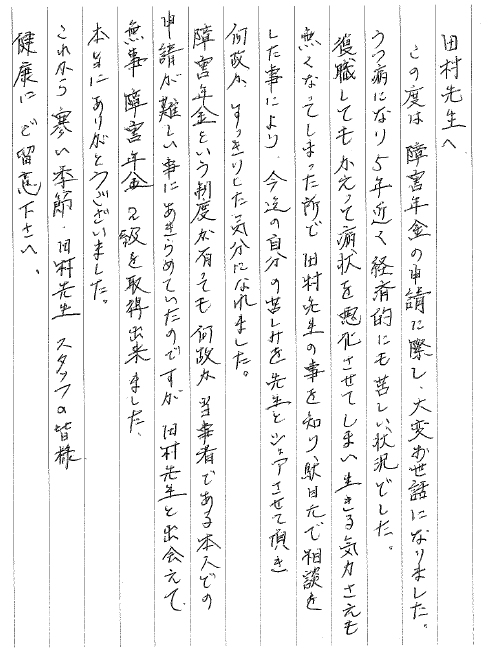 田村先生へ
この度は障害年金の申請に際し、大変お世話になりました。
うつ病になり5年近く経済的にも苦しい状況でした。
復職してもかえって病状を悪化させてしまい生きる気力さえも
無くなってしまった所で田村先生の事を知り、駄目元で相談を
した事により、今迄の自分の苦しみを先生とシェアさせて頂き
何故か、すっきりした気分になれました。
障害年金という制度が有っても何故か当事者である本人での
申請が難しい事にあきらめていたのですが田村先生と出会えて、
無事障害年金2級を取得出来ました、
本当にありがとうございました。
これから寒い季節、田村先生 スタッフの皆様
健康にご留意下さへ、